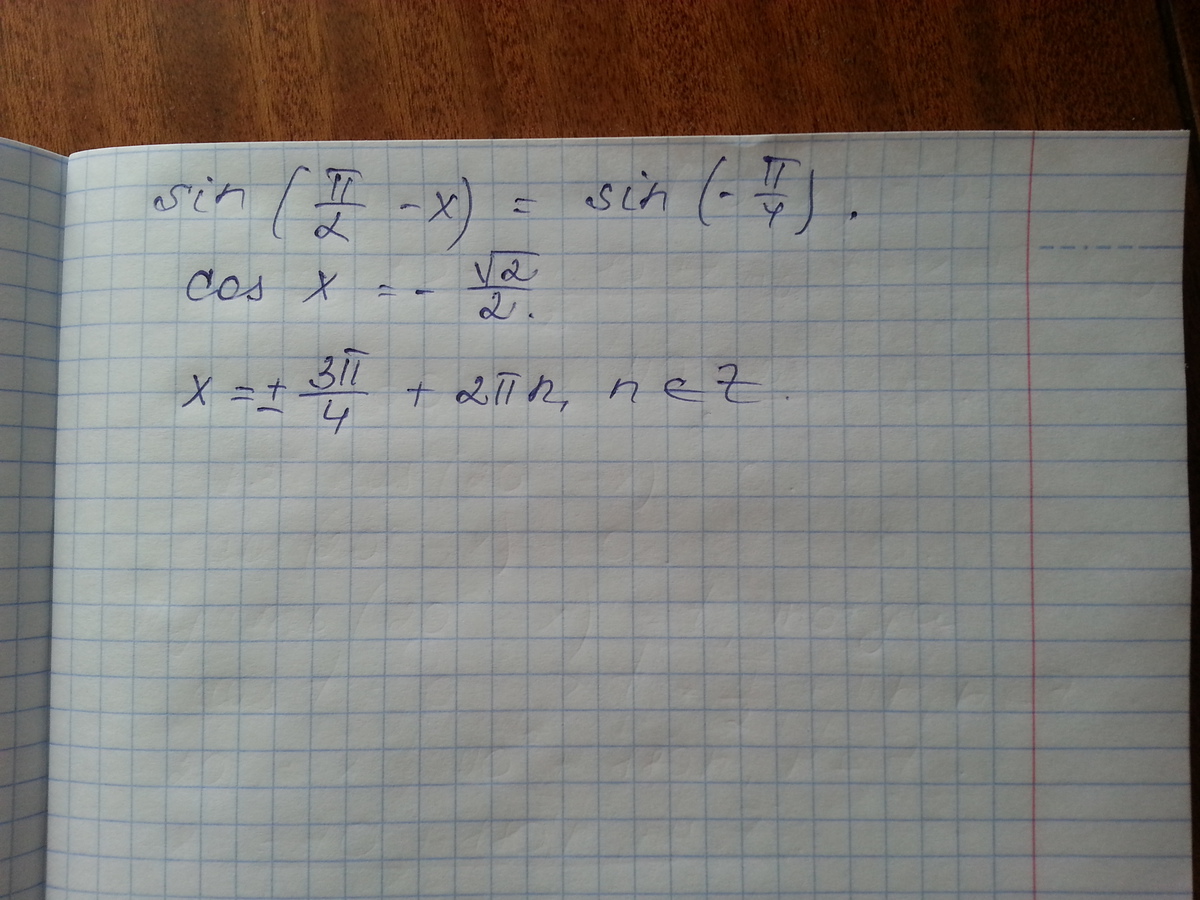 sin (π/2 - x) = sin (- π/4).
cos x = - √2/2.
x = ± 3π/4 + 2πn, n ∈ Z.